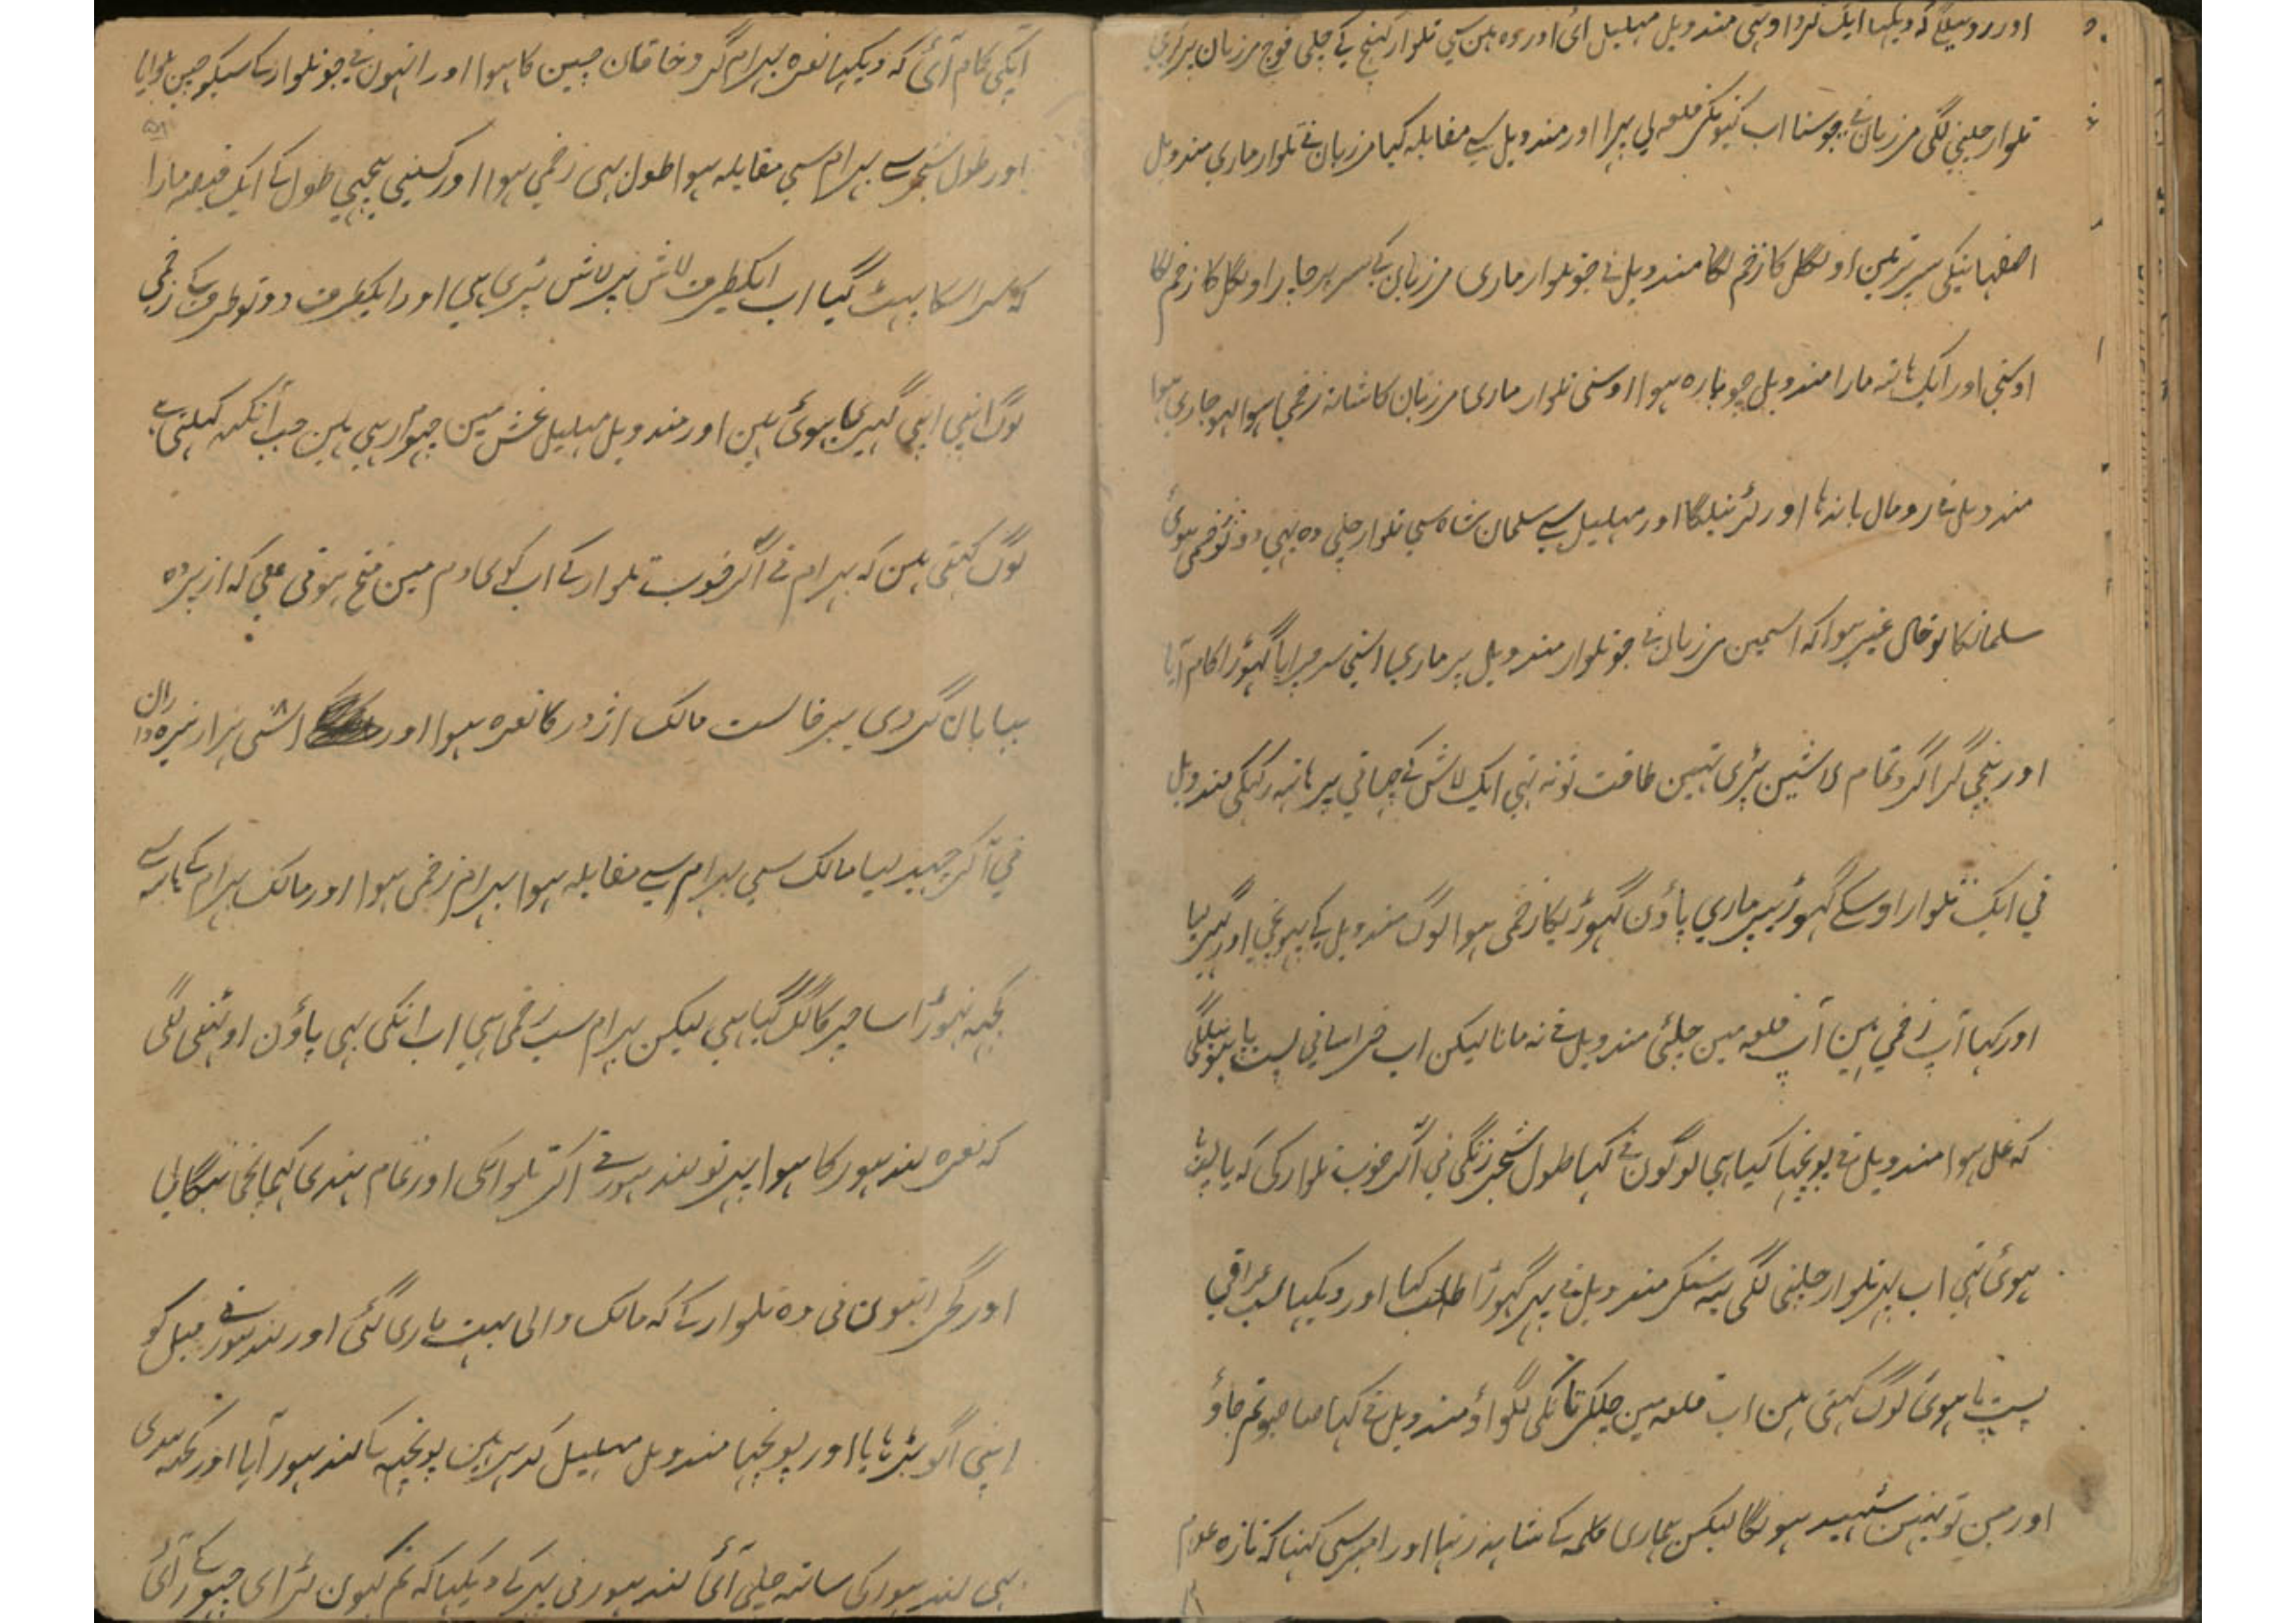 اور روسیلے کہ دیکہا ایک گرد اوٹہی مندویل مہلیل ائی اور وہ ہین سی تلوار کہنچ کے چلی فوج مرزبان پر گری
تلوار چلینی لگی مرزبان نی جو سنا اب کیونکر قلعہ لی پہرا اور مندویل سے مقابلہ کیا مرزبان نے تلوار ماری مندویل
اصفہانیکی سر پر تین اونگل کا زخم لگا مندویل نے جو تلوار ماری مرزبان کے سر پر چار اونگل کا زخم لگا
اوسنی اور ایک ہاتہ مارا مندویل چوبارہ ہوا اوسنی تلوار ماری مرزبان کا شانہ زخمی ہوا لہو جاری ہوا
مندویل نے رومال باندہا اور لڑنیلگا اور مہلیل سے سلمان شاہ سی تلوار چلی وہ بہی دونو زخمی ہوئی
سلمانکا تو حال غیر ہوا کہ اسمین مرزبان نے جو تلوار مندویل پر ماری اسنی سر چرایا گہوڑا کام آیا
اور نیچی گرا گرد تمام لاشین پڑی تہین طاقت تو نہ تہی ایک لاش کے چہاتی پر ہاتہ رکہکی مندویل
نی ایک تلوار اوسکے گہوڑیپر ماری پاؤن گہوڑیکا زخمی ہوا لوگ مندویل کے پہونچی اور گہیر لیا
اور کہا آپ زخمی ہین آپ قلعہ مین چلئی مندویل نے نہ مانا لیکن اب خراسانی پست پا ہونیلگی
کہ غل ہوا مندویل نے پونچہا کیا ہی لوگون نے کہا طول شجر زنگی نی آکر خوب تلوار کی کہ پا لپٹ
ہوئی تہی اب پہر تلوار چلینی لگی یہ سنکر مندویل نے پہر گہوڑا طلب کیا اور دیکہا سب عراقی
پست پا ہوئی لوگ کہتی ہین اب قلعہ مین چلکر ٹانکی لگواؤ مندویل نے کہا صاحبو تم جاؤ
اور مین تو یہین شہید ہونگا لیکن ہماری کلمہ کے شاہد رہنا اور امیر سی کہنا کہ تازہ غلام
آپکی کام آئی کہ دیکہا نعرہ بہرام گرد خاقان چین کا ہوا اور انہون نے جو تلوار کے سبکو چین بلوایا
اور طول شجر سے بہرام سی مقابلہ ہوا طول بہی زخمی ہوا اور کسینی پیچہی طول کے ایک قبضہ مارا
کہ سر اسکا پہٹ گیا اب ایکطرف لاش پر لاش پڑی ہی اور ایکطرف دونو طرف کے زخمی
لوگ اپنی اپنی گہیری ہوئی ہین اور مندویل مہلیل غش مین جہوم رہی ہین جب آنکہہ کہلتی ہی
لوگ کہتی ہین کہ بہرام نے آکر خوب تلوار کے اب کوی دم مین فتح ہوتی ہی کہ از پردہ
بیابان گردی برخاست مالک اژدر کا نعرہ ہوا اور اسّی ہزار نیزہ داران
نی آکر گہیر لیا مالک سی بہرام سے مقابلہ ہوا بہرام زخمی ہوا اور مالک بہرام کے ہاتہ سے
کچہہ تہوڑا سا چرکا لگ گیا ہی لیکن بہرام سب زخمی ہی اب انکی بہی پاؤن اوٹہنی لگی
کہ نعرہ لندہور کا ہوا پہر تو لندہور نے آکر تلوار کی اور تمام ہندی کہماچی بنگالی
اور گجراتیون نی وہ تلوار کے کہ مالک والی بہت ماری گئی اور لندہور نے فیل کو
اپنی آگو بڑہایا اور پونچہا مندویل مہلیل کدہر ہین پونچہہ کے لندہور آیا اور کچہہ ہندی
بہی لندہور کی ساتہہ چلی آئی لندہور نی پہر کے دیکہا کہ تم کیون لڑای چہوڑ کے آئی